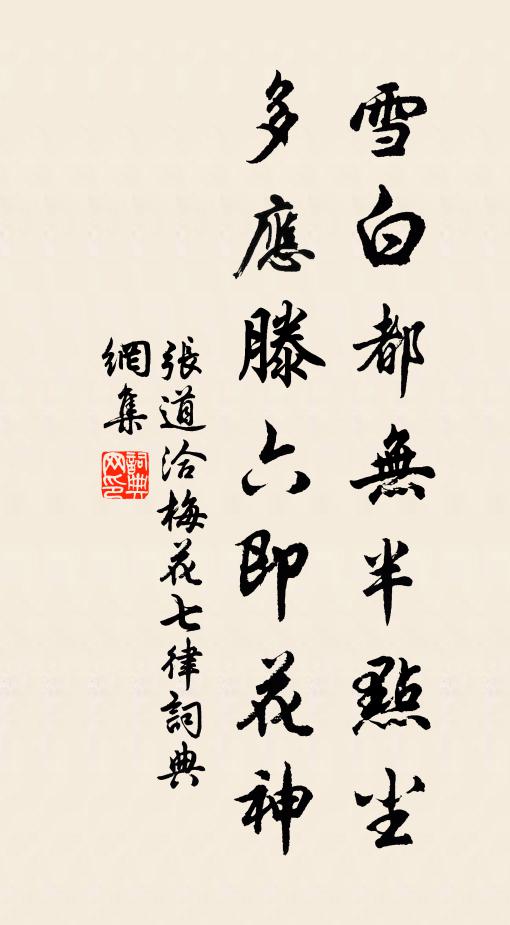 雪白都無半點塵
多應滕六即花神
張道洽梅花七律詞典
網集
詞典
网印